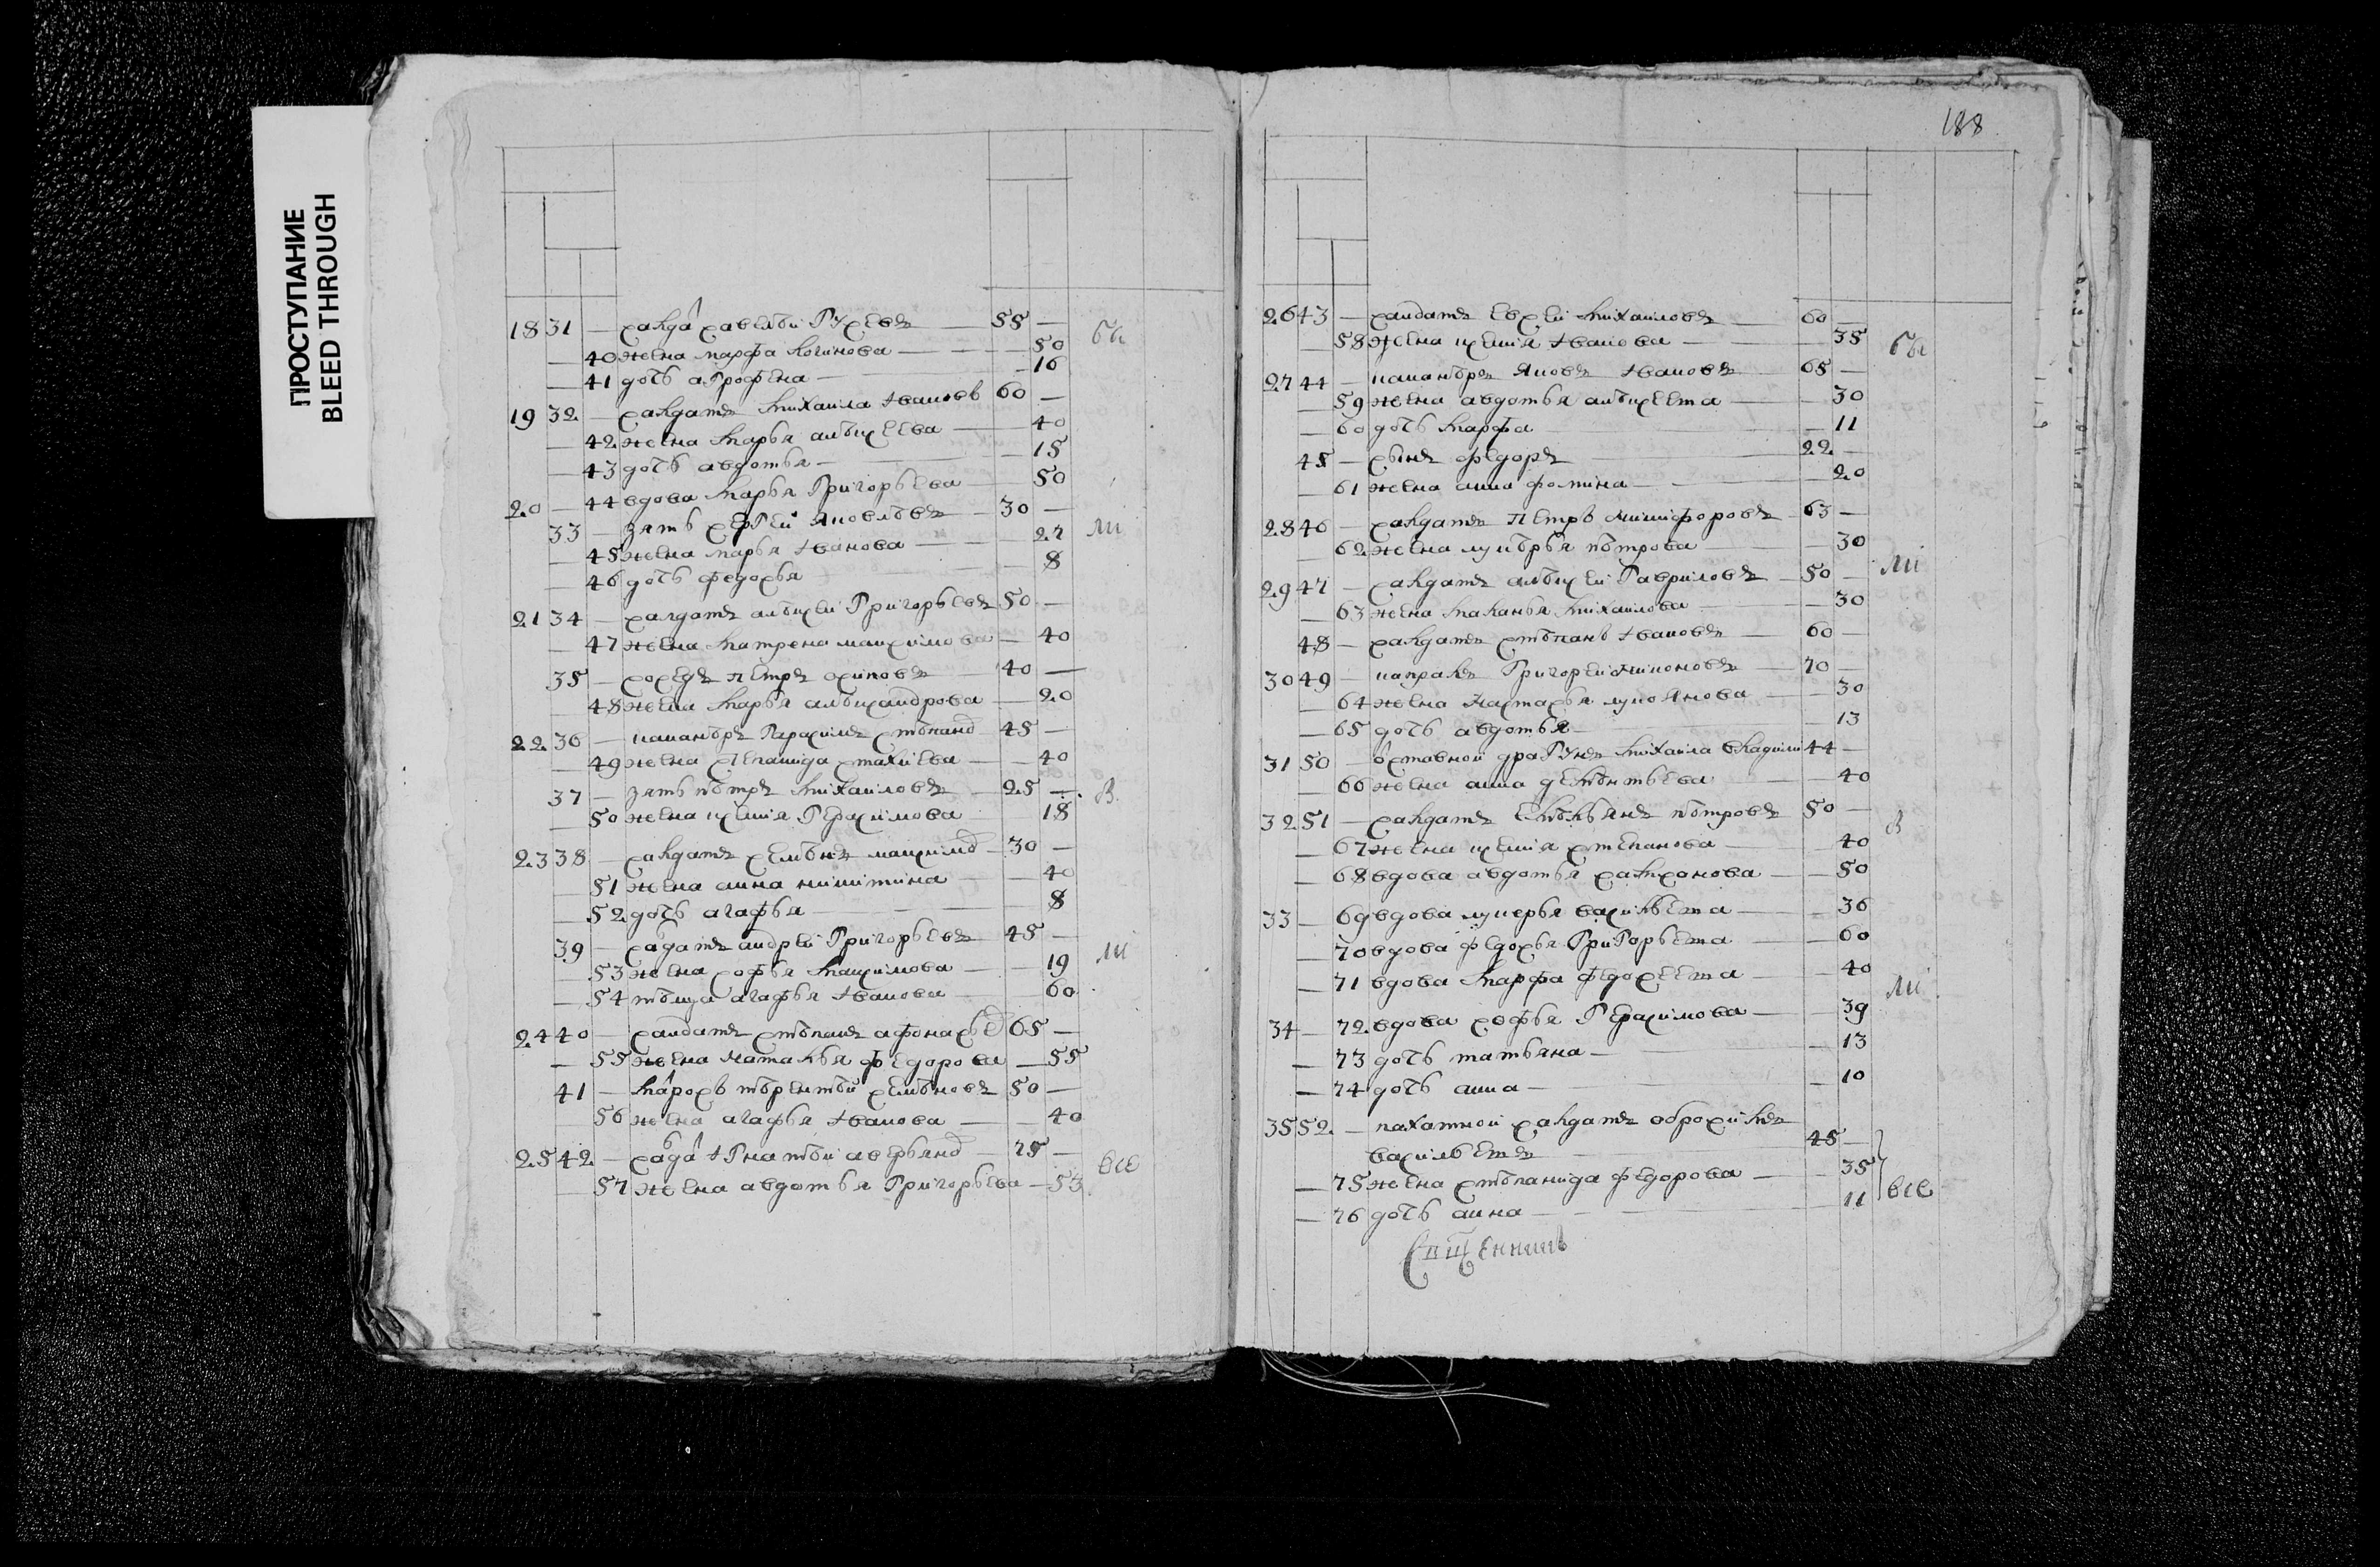 ПРОСТУПАНИЕ
BLEED THROUGH
18 31 — салда савелѣи гусевъ — 55 —
— 40 жена марфа логинова — 50
— 41 дочь агрофена — 16
бы
19 32 — салдатъ михаила ивановъ 60 —
— 42 жена марья алѣксеева — 40
— 43 дочь авдотья — 15
20 — 44 вдова марья григорьева — 50
33 — зять сергеи яковлѣвъ — 30 —
— 45 жена марья иванова — 27
ли
— 46 дочь федосья — 8
21 34 — салдатъ алѣксеи григорьевъ 50 —
— 47 жена матрена максимова — 40
35 — соседъ петръ осиповъ — 40 —
48 жена марья алѣксандрова — 20
22 36 — канантръ герасимъ стѣпанов 45 —
— 49 жена степанида стахиева — 40
37 — зять пѣтръ михаиловъ — 25 —
в
— 50 жена ксения герасимова 18
23 38 — салдатъ семѣнъ максимов — 30 —
51 жена анна никитина — 40
— 52 дочь агафья — 8
39 — салдатъ андреи григорьевъ 45 —
— 53 жена софья максимова — 19
ли
— 54 тѣща агафья иванова 60
24 40 — салдатъ стѣпанъ афонасьев 65 —
— 55 жена наталья федорова — 55
41 — марось тѣрентѣи семѣновъ 50 —
56 жена агафья иванова — 40
25 42 — салда игнатѣи аверьянов — 75 —
все
— 57 жена авдотья григорьева — 53
188
26 43 — салдатъ евсеи михаиловъ — 60 —
— 58 жена ксения иванова — 35
бы
27 44 — канантръ яковъ ивановъ 65 —
— 59 жена авдотья алѣксеева — 30
— 60 дочь марфа — 11
45 — сынъ федоръ — 22 —
— 61 жена анна фомина — 20
28 46 — салдатъ петръ никифоровъ — 63 —
— 62 жена лукѣрья пѣтрова — 30
ли
29 47 — салдатъ алѣксеи гавриловъ — 50 —
— 63 жена маланья михаилова — 30
48 — салдатъ стѣпанъ ивановъ — 60 —
30 49 — капралъ григореи филиповъ — 70 —
— 64 жена настасья лукоянова — 30
— 65 дочь авдотья — 13
31 50 — отставнои драгунъ михаила владими 44 —
— 66 жена анна дементьева — 40
32 51 — салдатъ емѣльянъ пѣтровъ 50 —
в
— 67 жена ксения степанова — 40
— 68 вдова авдотья самсонова — 50
33 — 69 вдова лукерья васильева — 36
— 70 вдова федосья григорьева — 60
— 71 вдова марфа федосеева — 40
ли
34 — 72 вдова софья герасимова — 39
— 73 дочь татьяна — 13
— 74 дочь анна — 10
35 52 — пахатнои салдатъ абросимъ
васильевъ — 45 —
— 75 жена стѣпанида федорова — 35
все
— 76 дочь анна — 11
Священникъ